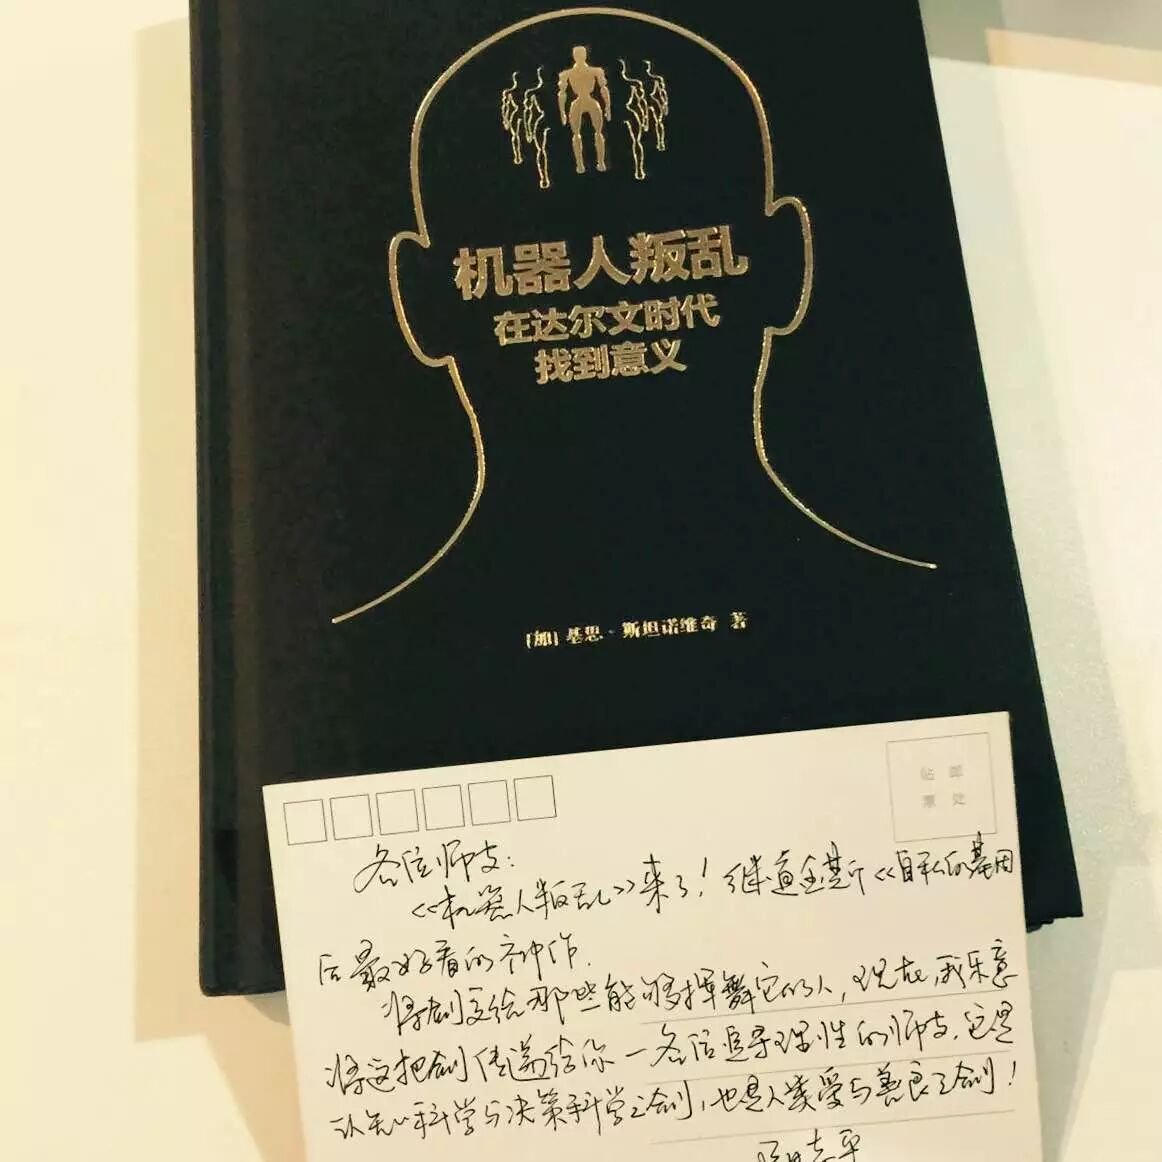 机器人叛乱
在达尔文时代
找到意义
[加] 基思·斯坦诺维奇 著
贴 邮
票 处
各位师友:
《机器人叛乱》来了!继道金斯《自私的基因
后最好看的神作.
将剑交给那些能够挥舞它的人,现在,我乐意
将这把剑传递给你—各位追寻理性的师友.这是
认知科学与决策科学之剑,也是人类爱与善良之剑!
志平